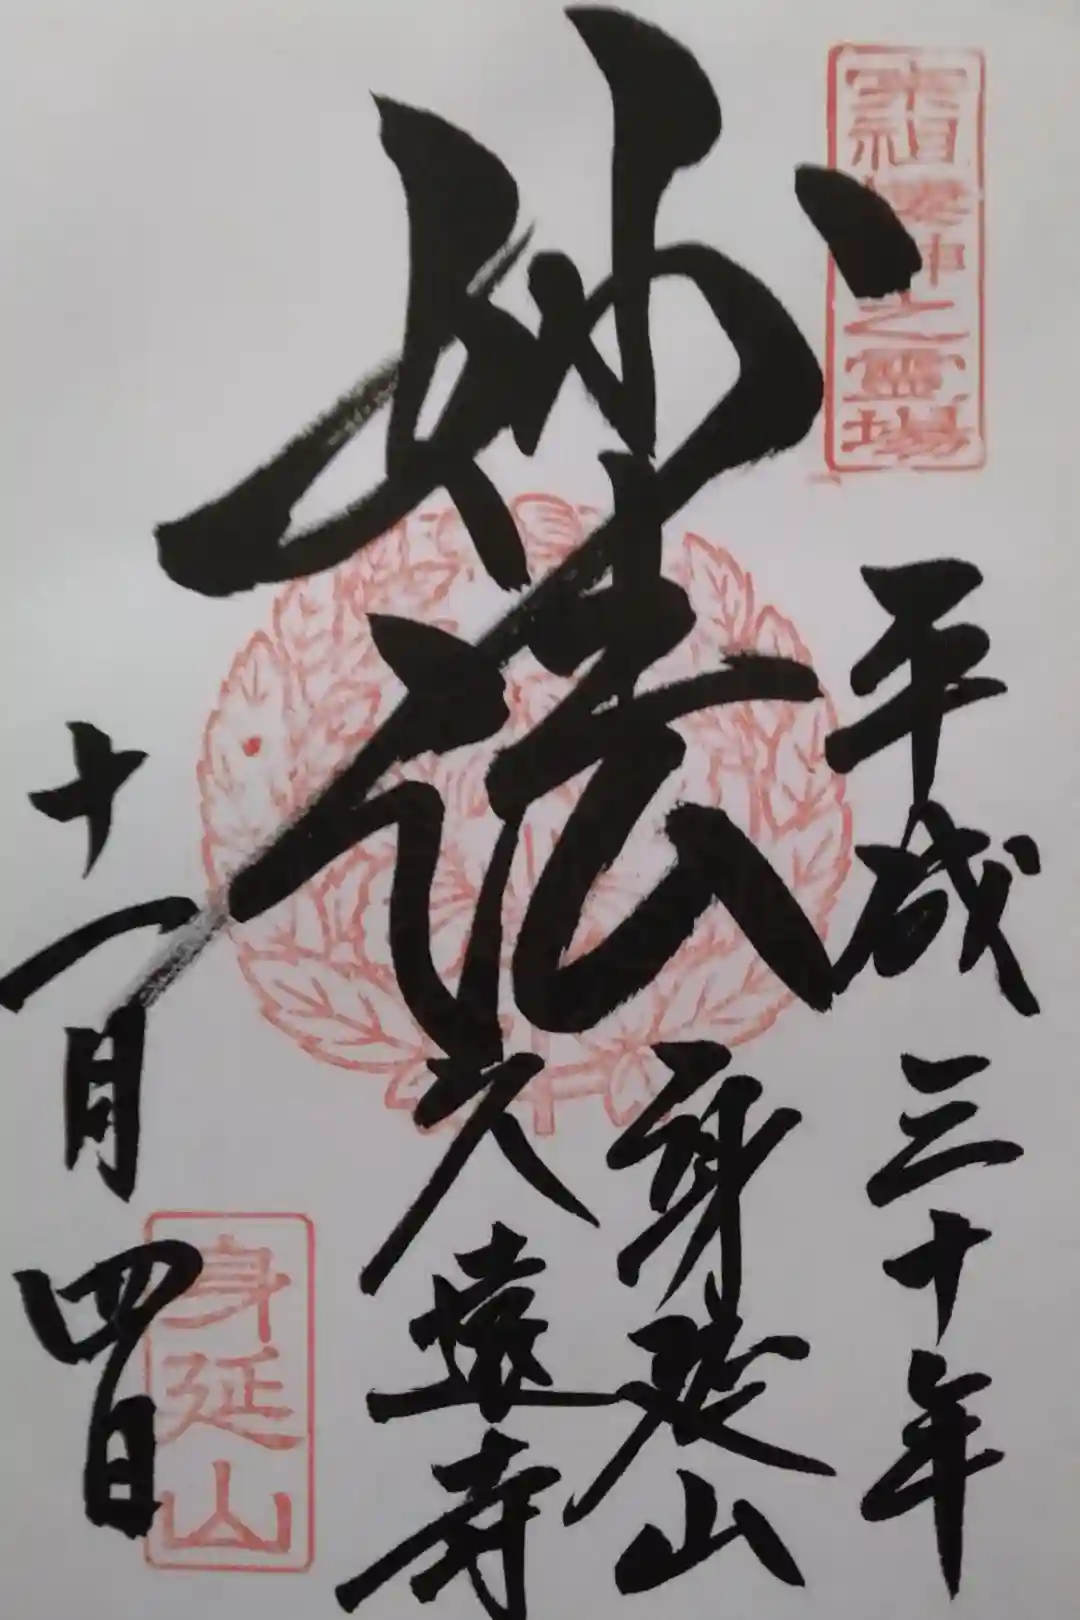 宗祖棲神之霊場
平成三十年
妙法
身延山
久遠寺
十一月四日
身延山